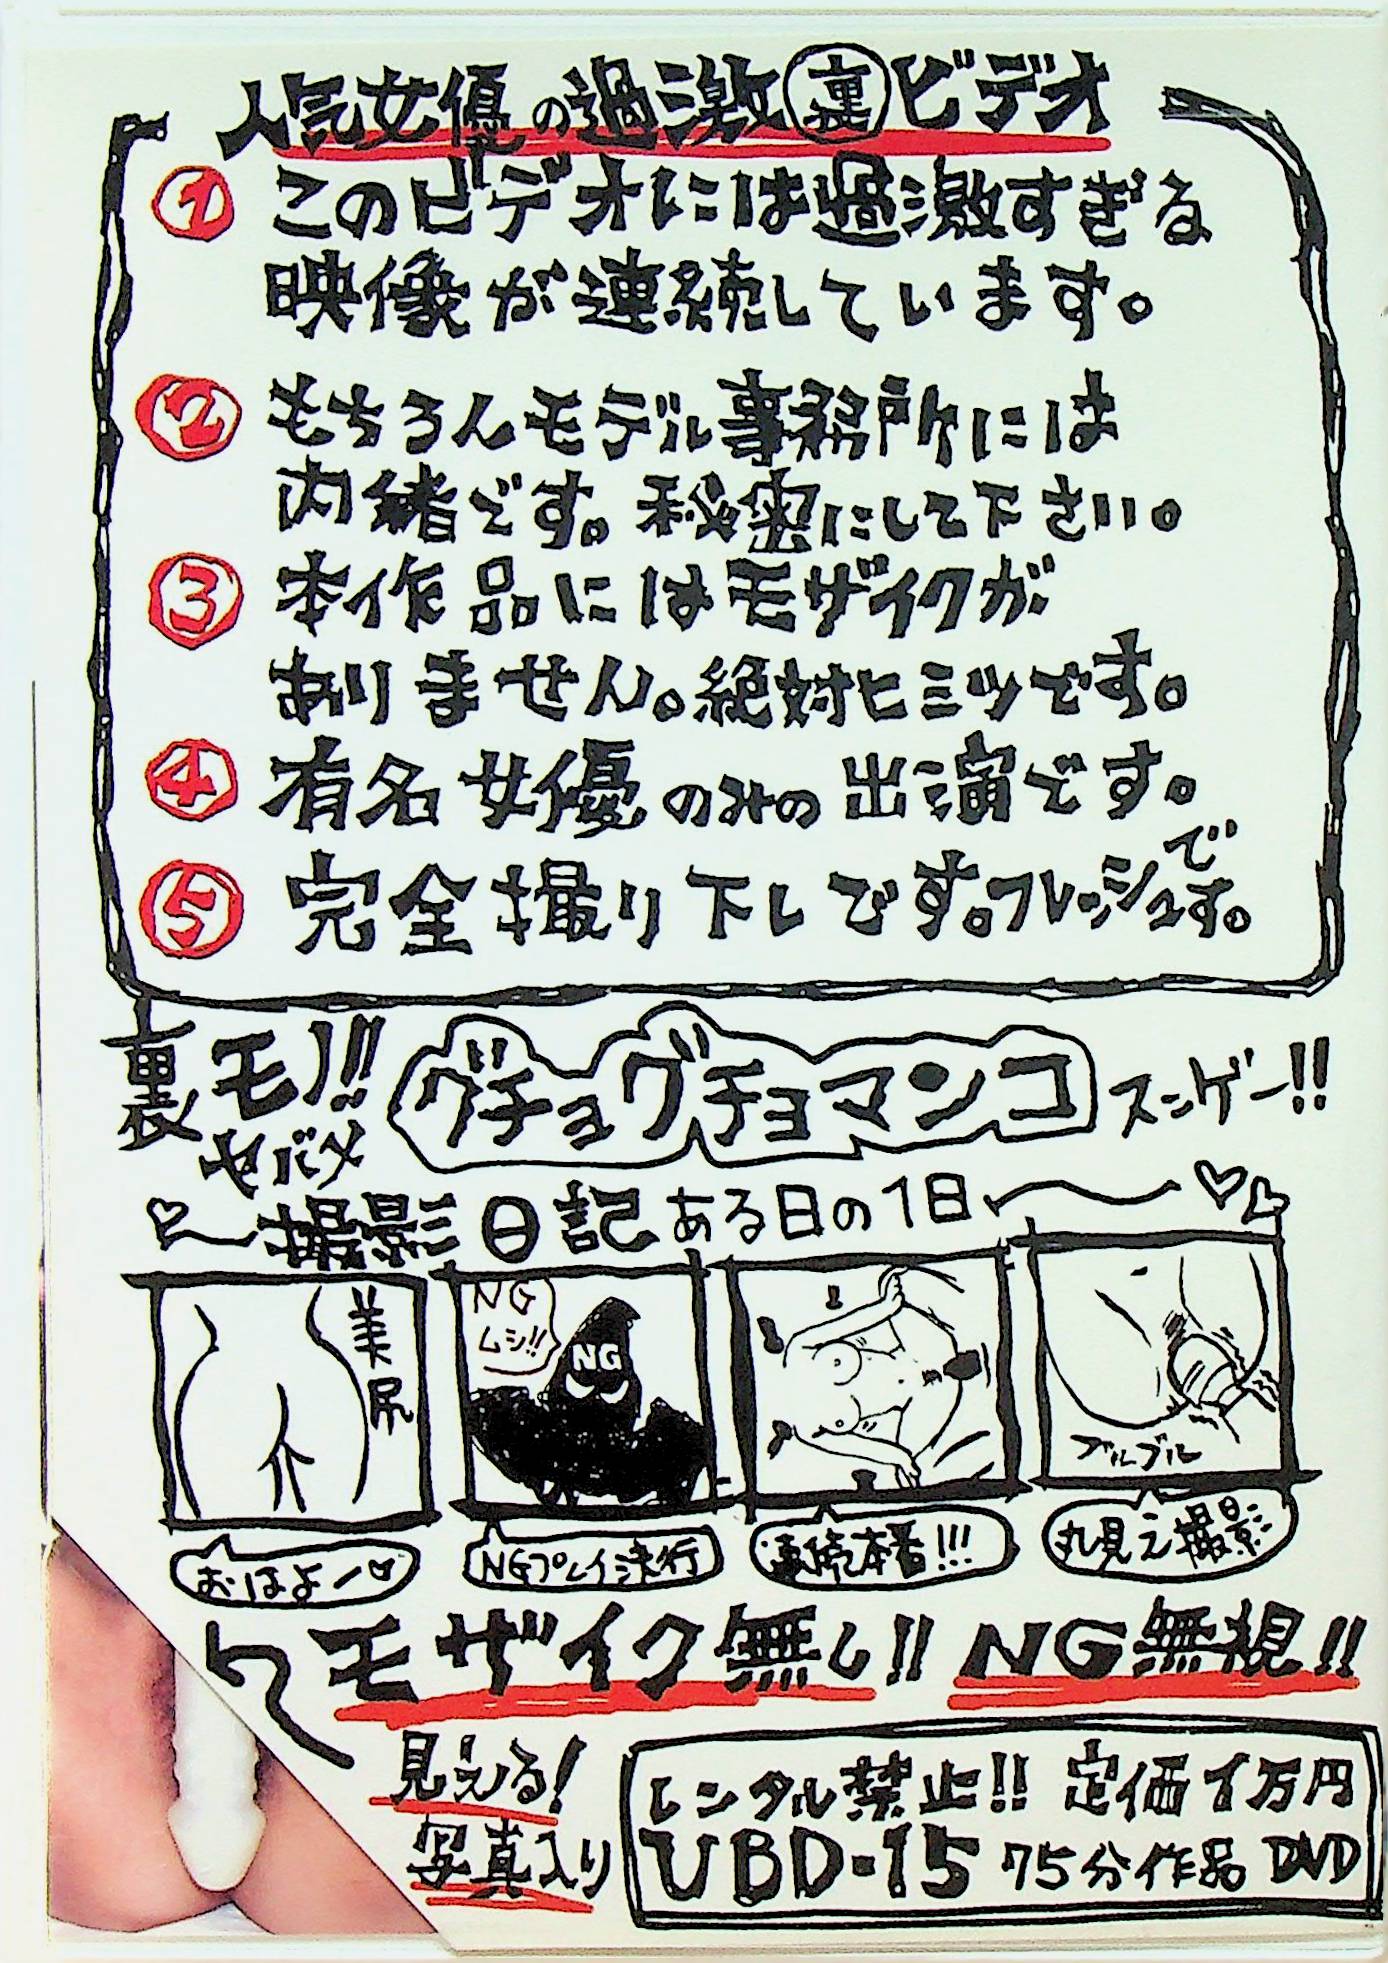 人気女優の過激裏ビデオ
1 このビデオには過激すぎる
映像が連続しています。
2 もちろんモデル事務所には
内緒です。秘密にして下さい。
3 本作品にはモザイクが
ありません。絶対ヒミツです。
4 有名女優のみの出演です。
5 完全撮り下しです。フレッシュです。
裏モノ!!
ヤバメ
グチョグチョマンコ
スンゲー!!
撮影日記ある日の1日
美尻
NG
ムシ!!
NG
ブルブル
おはよー
NGプレイ決行
連続本番!!!
丸見え撮影
モザイク無し!! NG無視!!
見える!
写真入り
レンタル禁止!! 定価1万円
UBD-15 75分作品 DVD